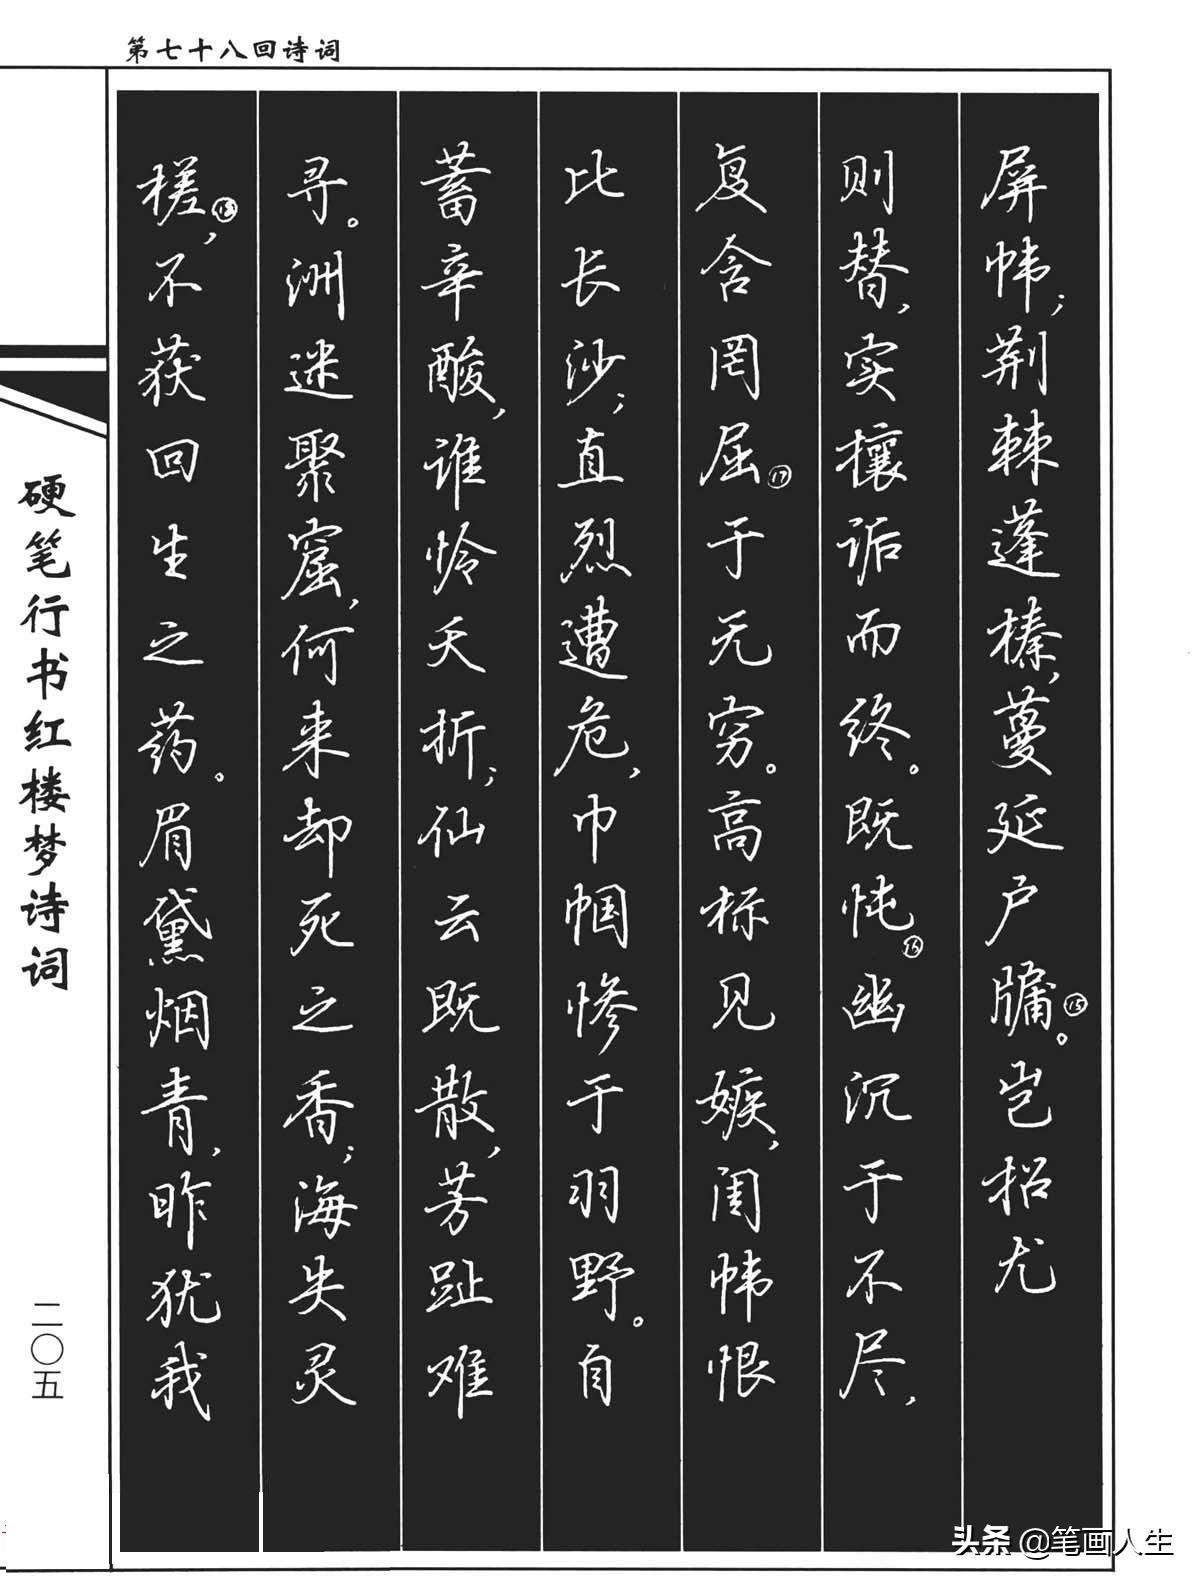 第七十八回诗词
屏帏;荆棘蓬榛,蔓延户牖⑮。岂招尤
则替,实攘诟而终。既忳⑯幽沉于不尽,
复含罔屈⑰于无穷。高标见嫉,闺帏恨
比长沙;直烈遭危,巾帼惨于羽野。自
蓄辛酸,谁怜夭折;仙云既散,芳趾难
寻。洲迷聚窟,何来却死之香;海失灵
槎⑱,不获回生之药。眉黛烟青,昨犹我
硬笔行书红楼梦诗词
二〇五
头条 @笔画人生